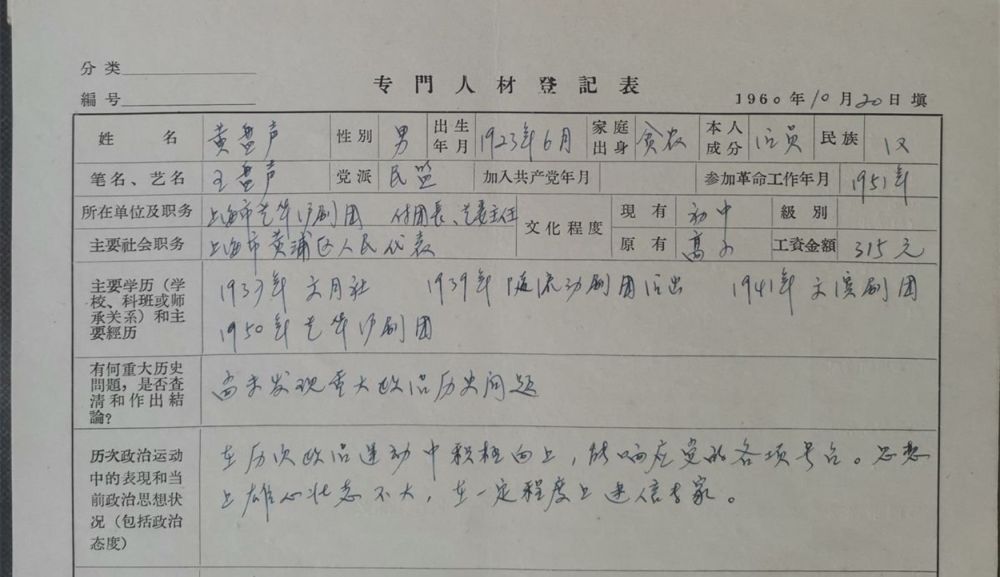 分类
專門人材登記表
編号
1960年10月20日填
姓名 黄盘声 性別 男 出生年月 1923年6月 家庭出身 贫农 本人成分 演员 民族 汉
笔名、艺名 王盘声 党派 民盟 加入共产党年月 参加革命工作年月 1951年
所在单位及职务 上海市艺华沪剧团 付团長、艺委主任 文化程度 現有 初中 級別
主要社会职务 上海市黄浦区人民代表 原有 高小 工資金額 315元
主要学历（学校、科班或师承关系）和主要經历
1937年 文月社 1939年 随流动剧团演出 1941年 文滨剧团
1950年 艺华沪剧团
有何重大历史問題，是否查清和作出結論？
尚未发现重大政治历史问题
历次政治运动中的表現和当前政治思想状况（包括政治态度）
在历次政治运动中积极向上，能响应党的各项号召。思想
上雄心壮志不大，在一定程度上迷信专家。